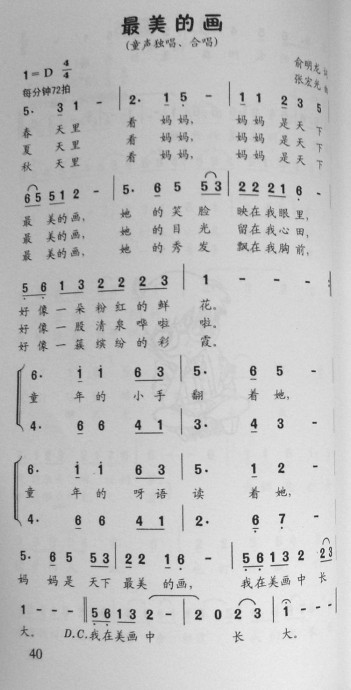 最美的画
(童声独唱、合唱)
1=D 4/4
俞明龙 词
每分钟72拍
张宏光 曲
5. 3 1 - | 2. 1 5 - | 1 1 2 3 5
春 天里 看 妈妈, 妈妈 是天下
夏 天里 看 妈妈, 妈妈 是天下
秋 天里 看 妈妈, 妈妈 是天下
6 5 5 1 2 - | 5. 6 5 5 3 | 2 2 2 1 6 -
最 美的画, 她 的笑 脸 映在我眼 里,
最 美的画, 她 的目 光 留在我心 田,
最 美的画, 她 的秀 发 飘在我胸 前,
5 6 1 3 2 2 2 3 | 1 - - - :
好像一朵粉红的鲜 花。
好像一股清泉哗啦 啦。
好像一簇缤纷的彩 霞。
6. 1 1 6 3 | 5. 6 5 -
童 年的 小手 翻 着她,
4. 6 6 4 1 | 3. 4 3 -
6. 1 1 6 3 | 5. 1 2 -
童 年的 呀语 读 着她,
4. 6 6 4 1 | 2. 6 7 -
5. 6 5 5 3 | 2 2 1 6 - | 5 6 1 3 2 2 3
妈 妈是 天下 最美 的画, 我在美画中 长
1 - - - ‖ 5 6 1 3 2 - | 2 0 2 3 | 1 - - -
大。 D.C.我在美画 中 长 大。
40